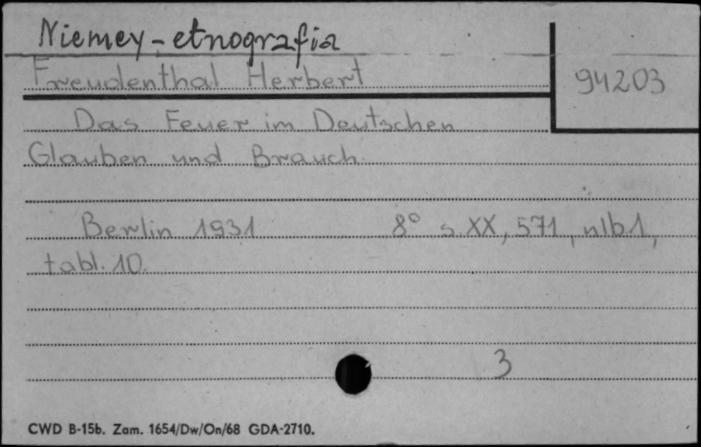 Niemcy-etnografia
Freudenthal Herbert
94203
Das Feuer im Deutschen
Glauben und Brauch.
Berlin 1931 8° s XX, 571, nlb1,
tabl. 10.
3
CWD B-15b. Zam. 1654/Dw/On/68 GDA-2710.